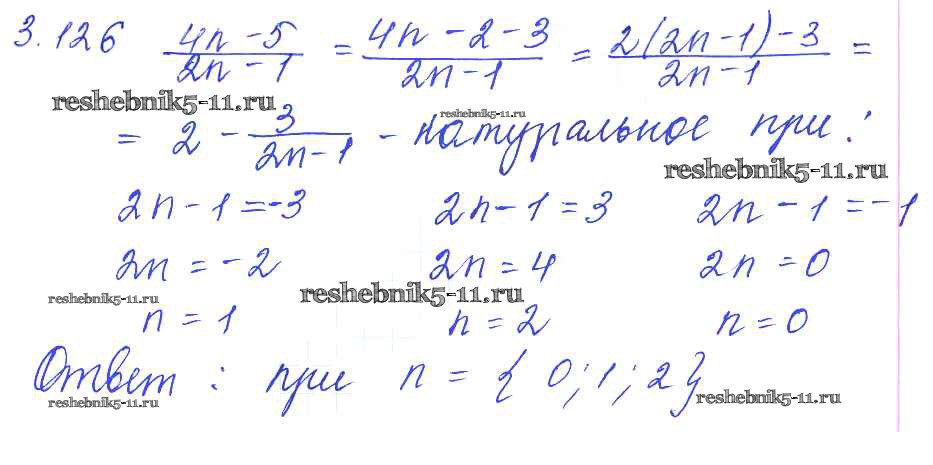 3.126 (4n-5)/(2n-1) = (4n-2-3)/(2n-1) = (2(2n-1)-3)/(2n-1) =
reshebnik5-11.ru
reshebnik5-11.ru
= 2 - 3/(2n-1) - натуральное при:
reshebnik5-11.ru
2n-1=-3 2n-1=3 2n-1=-1
2n=-2 2n=4 2n=0
reshebnik5-11.ru
reshebnik5-11.ru
n=1 n=2 n=0
Ответ: при n={0;1;2}
reshebnik5-11.ru
reshebnik5-11.ru